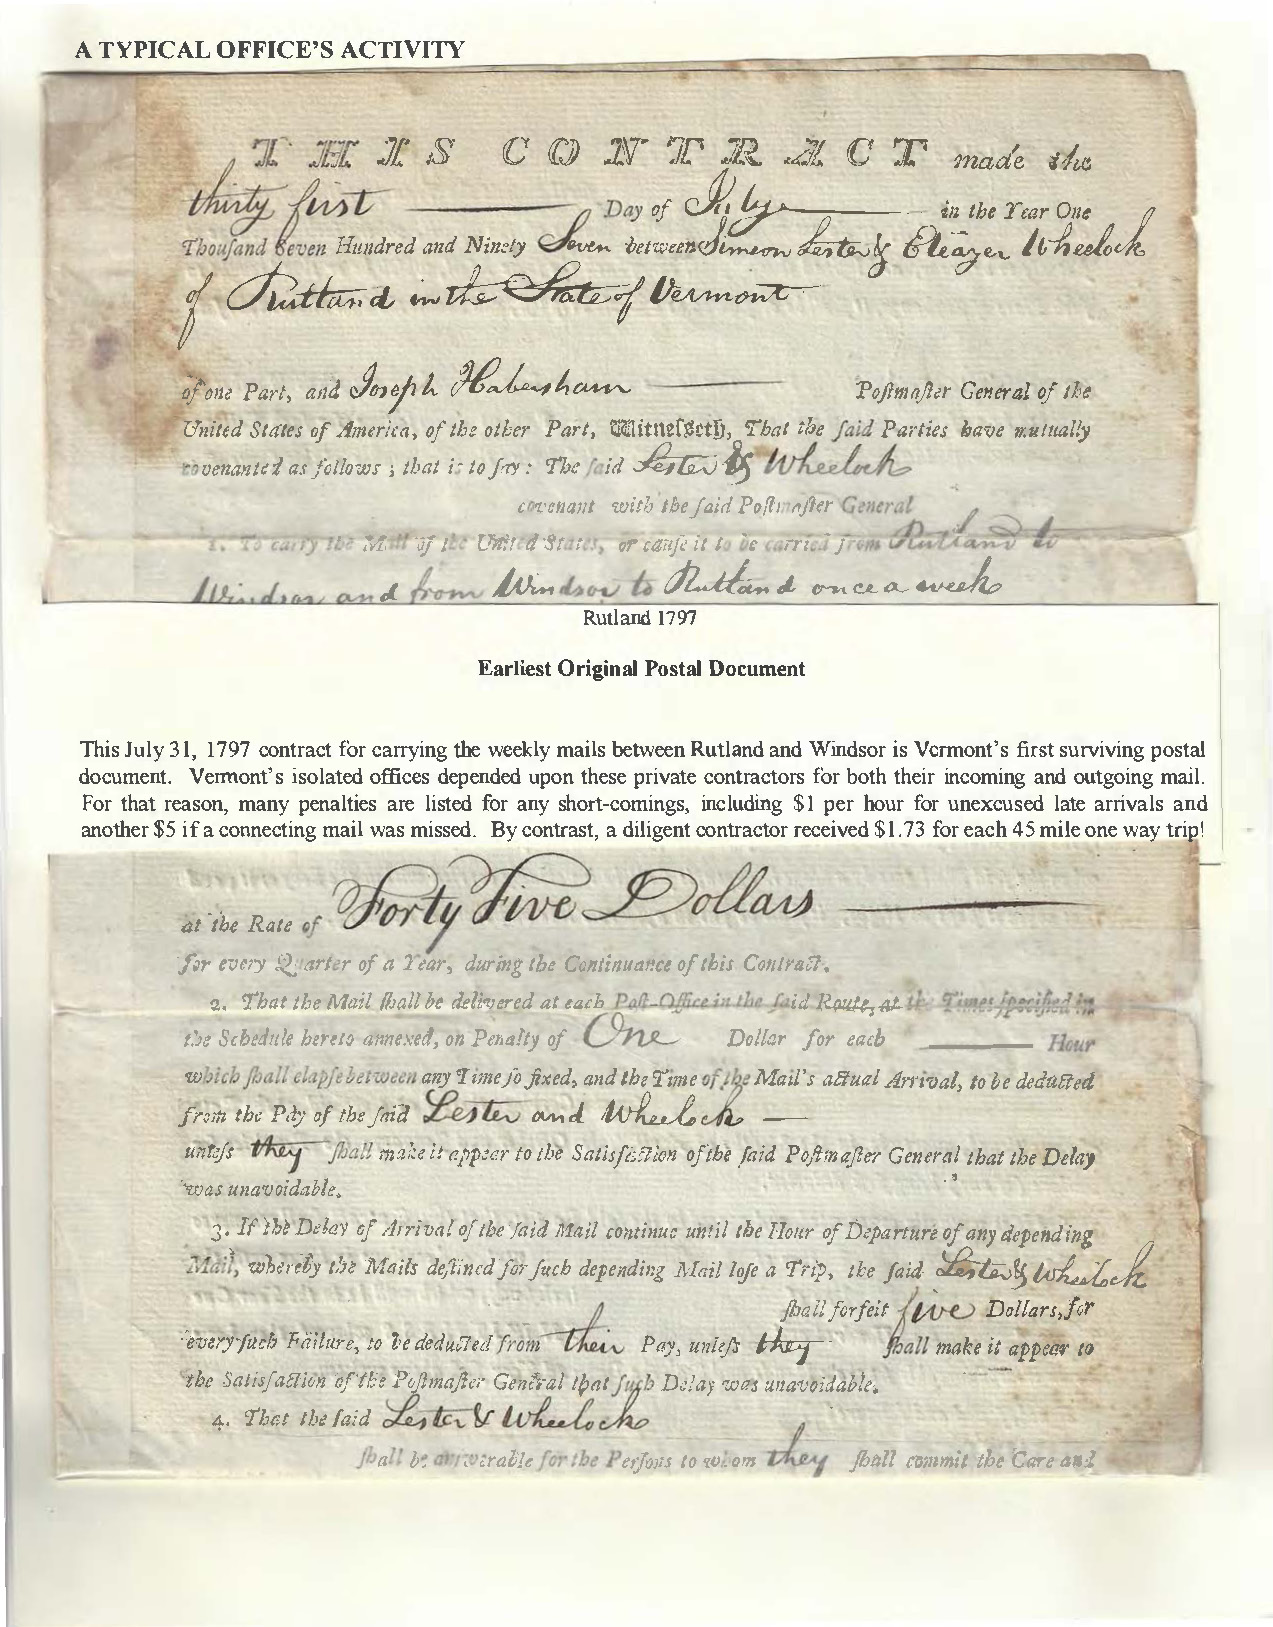 A TYPICAL OFFICE'S ACTIVITY
THIS CONTRACT made the
thirty first Day of July in the Year One
Thouſand Seven Hundred and Ninety Seven between Simeon Lester & Eleazer Wheelock
of Rutland in the State of Vermont
of one Part, and Joseph Habersham Poſtmaſter General of the
United States of America, of the other Part, Witneſſeth, That the ſaid Parties have mutually
covenanted as follows; that is to ſay: The ſaid Lester & Wheelock
covenant with the ſaid Poſtmaſter General
1. To carry the Mail of the United States, or cauſe it to be carried from Rutland to
Windsor and from Windsor to Rutland once a week
Rutland 1797
Earliest Original Postal Document
This July 31, 1797 contract for carrying the weekly mails between Rutland and Windsor is Vermont's first surviving postal
document. Vermont's isolated offices depended upon these private contractors for both their incoming and outgoing mail.
For that reason, many penalties are listed for any short-comings, including $1 per hour for unexcused late arrivals and
another $5 if a connecting mail was missed. By contrast, a diligent contractor received $1.73 for each 45 mile one way trip!
at the Rate of Forty Five Dollars
for every Quarter of a Year, during the Continuance of this Contract.
2. That the Mail ſhall be delivered at each Poſt-Office in the ſaid Route, at the Times ſpecified in
the Schedule hereto annexed, on Penalty of One Dollar for each Hour
which ſhall elapſe between any Time ſo fixed, and the Time of the Mail's actual Arrival, to be deducted
from the Pay of the ſaid Lester and Wheelock
unleſs they ſhall make it appear to the Satisfaction of the ſaid Poſtmaſter General that the Delay
was unavoidable.
3. If the Delay of Arrival of the ſaid Mail continue until the Hour of Departure of any depending
Mail, whereby the Mails deſtined for ſuch depending Mail loſe a Trip, the ſaid Lester & Wheelock
ſhall forfeit five Dollars, for
every ſuch Failure, to be deducted from their Pay, unleſs they ſhall make it appear to
the Satisfaction of the Poſtmaſter General that ſuch Delay was unavoidable.
4. That the ſaid Lester & Wheelock
ſhall be anſwerable for the Perſons to whom they ſhall commit the Care and